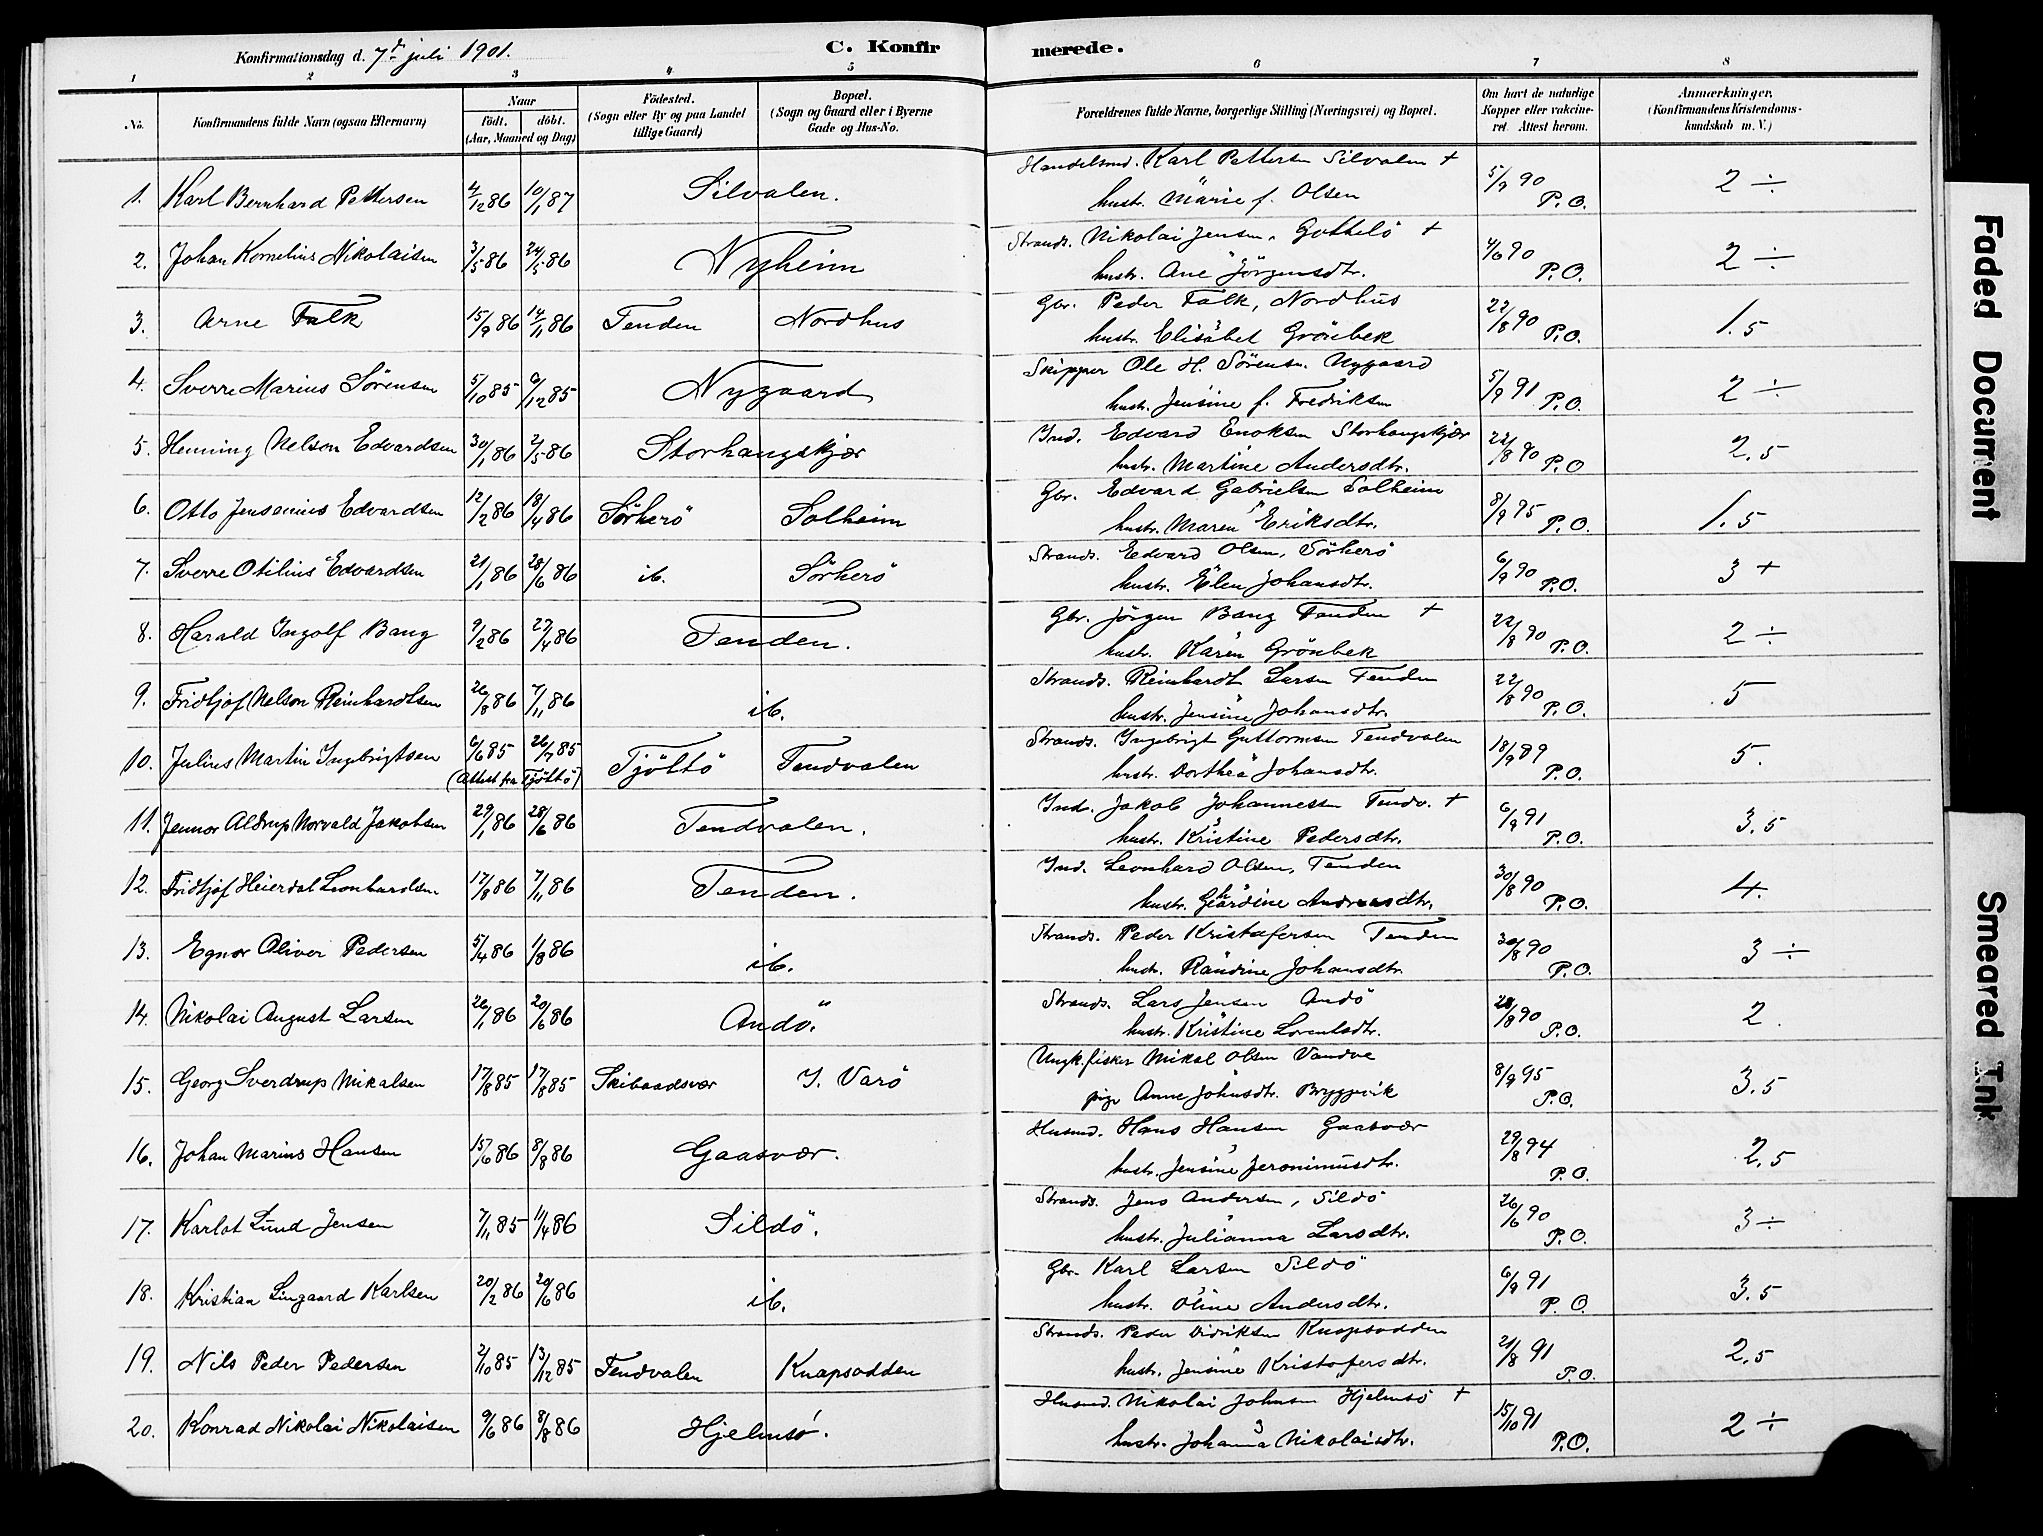 Konfirmationsdag d. 7de juli 1901.
C. Konfirmerede.
1 2 3 4 5 6 7 8
No. Konfirmandens fulde Navn (ogsaa Efternavn) Naar Födt. döbt. (Aar, Maaned og Dag) Födested. (Sogn eller By og paa Landet tillige Gaard) Bopæl. (Sogn og Gaard eller i Byerne Gade og Hus-No. Forældrenes fulde Navne, borgerlige Stilling (Næringsvei) og Bopæl. Om havt de naturlige Kopper eller vakcineret. Attest herom. Anmærkninger. (Konfirmandens Kristendomskundskab m. V.)
1. Karl Bernhard Pettersen 4/12 86 10/1 87 Silvalen. Handelsmd. Karl Pettersen Silvalen +
hustr. Marie f. Olsen 5/9 90 P.O. 2 ÷
2. Johan Kornelius Nikolaisen 3/5 86 24/5 86 Nyheim Strands. Nikolai Jensen, Gothelö +
hustr. Ane Jörgensdtr. 4/6 90 P.O. 2 ÷
3. Arne Falk 15/9 86 14/11 86 Tenden Nordhus Gbr. Peder Falk, Nordhus
hustr. Elisabet Grönbek 22/8 90 P.O. 1.5
4. Sverre Marius Sörensen 5/10 85 6/12 85 Nygaard Skipper Ole H. Sörensen Nygaard
hustr. Jensine f. Fredriksen 5/9 91 P.O. 2 ÷
5. Henning Nelson Edvardsen 30/1 86 2/5 86 Storhaugskjær Ind. Edvard Enoksen Storhaugskjær
hustr. Martine Andersdtr. 22/8 90 P.O 2.5
6. Otto Jensenius Edvardsen 12/2 86 18/4 86 Sörherö Solheim Gbr. Edvard Gabrielsen Solheim
hustr. Maren Eriksdtr. 8/9 95 P.O. 1.5
7. Sverre Otilius Edvardsen 21/1 86 28/6 86 ib. Sörherö Strands. Edvard Olsen, Sörherö
hustr. Elen Johansdtr. 6/9 90 P.O. 3 +
8. Harald Ingolf Bang 9/2 86 27/4 86 Tenden. Gbr. Jörgen Bang Tenden +
hustr. Karen Grönbek 22/8 90 P.O. 2 ÷
9. Fridtjof Nelson Reinhardtsen 26/8 86 7/11 86 ib. Strands. Reinhardt Larsen Tenden
hustr. Jensine Johansdtr. 22/8 90 P.O. 5
10. Julius Martin Ingebrigtsen 6/6 85 26/7 85 (Attest fra Tjöttö) Tjöttö Tendvalen Strands. Ingebrigt Guttormsen Tendvalen
hustr. Dorthea Johansdtr. 18/9 89 P.O. 5.
11. Jennor Aldrup Norvald Jakobsen 29/1 86 28/6 86 Tendvalen. Ind. Jakob Johannessen Tendv. +
hustr. Kristine Pedersdtr. 6/9 91 P.O. 3.5
12. Fridtjof Heierdal Leonhardsen 17/8 86 7/11 86 Tenden. Ind. Leonhard Olsen, Tenden
hustr. Gehardine Andreasdtr. 30/8 90 P.O. 4.
13. Egnor Oliver Pedersen 5/4 86 1/8 86 ib. Strands. Peder Kristofersen Tenden
hustr. Randine Johansdtr. 30/8 90 P.O. 3 ÷
14. Nikolai August Larsen 26/1 86 20/6 86 Andö. Strands. Lars Jensen Andö
hustr. Kristine Lorentsdtr. 28/8 90 P.O. 2.
15. Georg Sverdrup Mikalsen 17/8 85 17/8 85 Skibaadsvær Y. Varö Ungk. fisker Mikal Olsen Vandve
pige Anne Johnsdtr. Bryggvik 8/9 95 P.O. 3.5
16. Johan Marius Hansen 15/6 86 8/8 86 Gaasvær. Husmd. Hans Hansen Gaasvær
hustr. Jensine Jeronimusdtr. 29/8 94 P.O. 2.5
17. Karlot Lund Jensen 7/11 85 11/4 86 Sildö. Strands. Jens Andersen, Sildö
hustr. Julianna Larsdtr. 26/6 90 P.O. 3 ÷
18. Kristian Lingaard Karlsen 20/2 86 20/6 86 ib. Gbr. Karl Larsen Sildö
hustr. Oline Andersdtr. 6/9 91 P.O. 3.5
19. Nils Peder Pedersen 2/10 85 13/12 85 Tendvalen Knapsodden Strands. Peder Didriksen Knapsodden
hustr. Jensine Kristofersdtr. 21/8 91 P.O. 2.5
20. Konrad Nikolai Nikolaisen 9/6 86 8/8 86 Hjelmsö. Husmd. Nikolai Johnsen Hjelmsö +
hustr. Johanna Nikolaisdtr. 15/10 91 P.O. 2 ÷
Faded Document
Smeared Ink